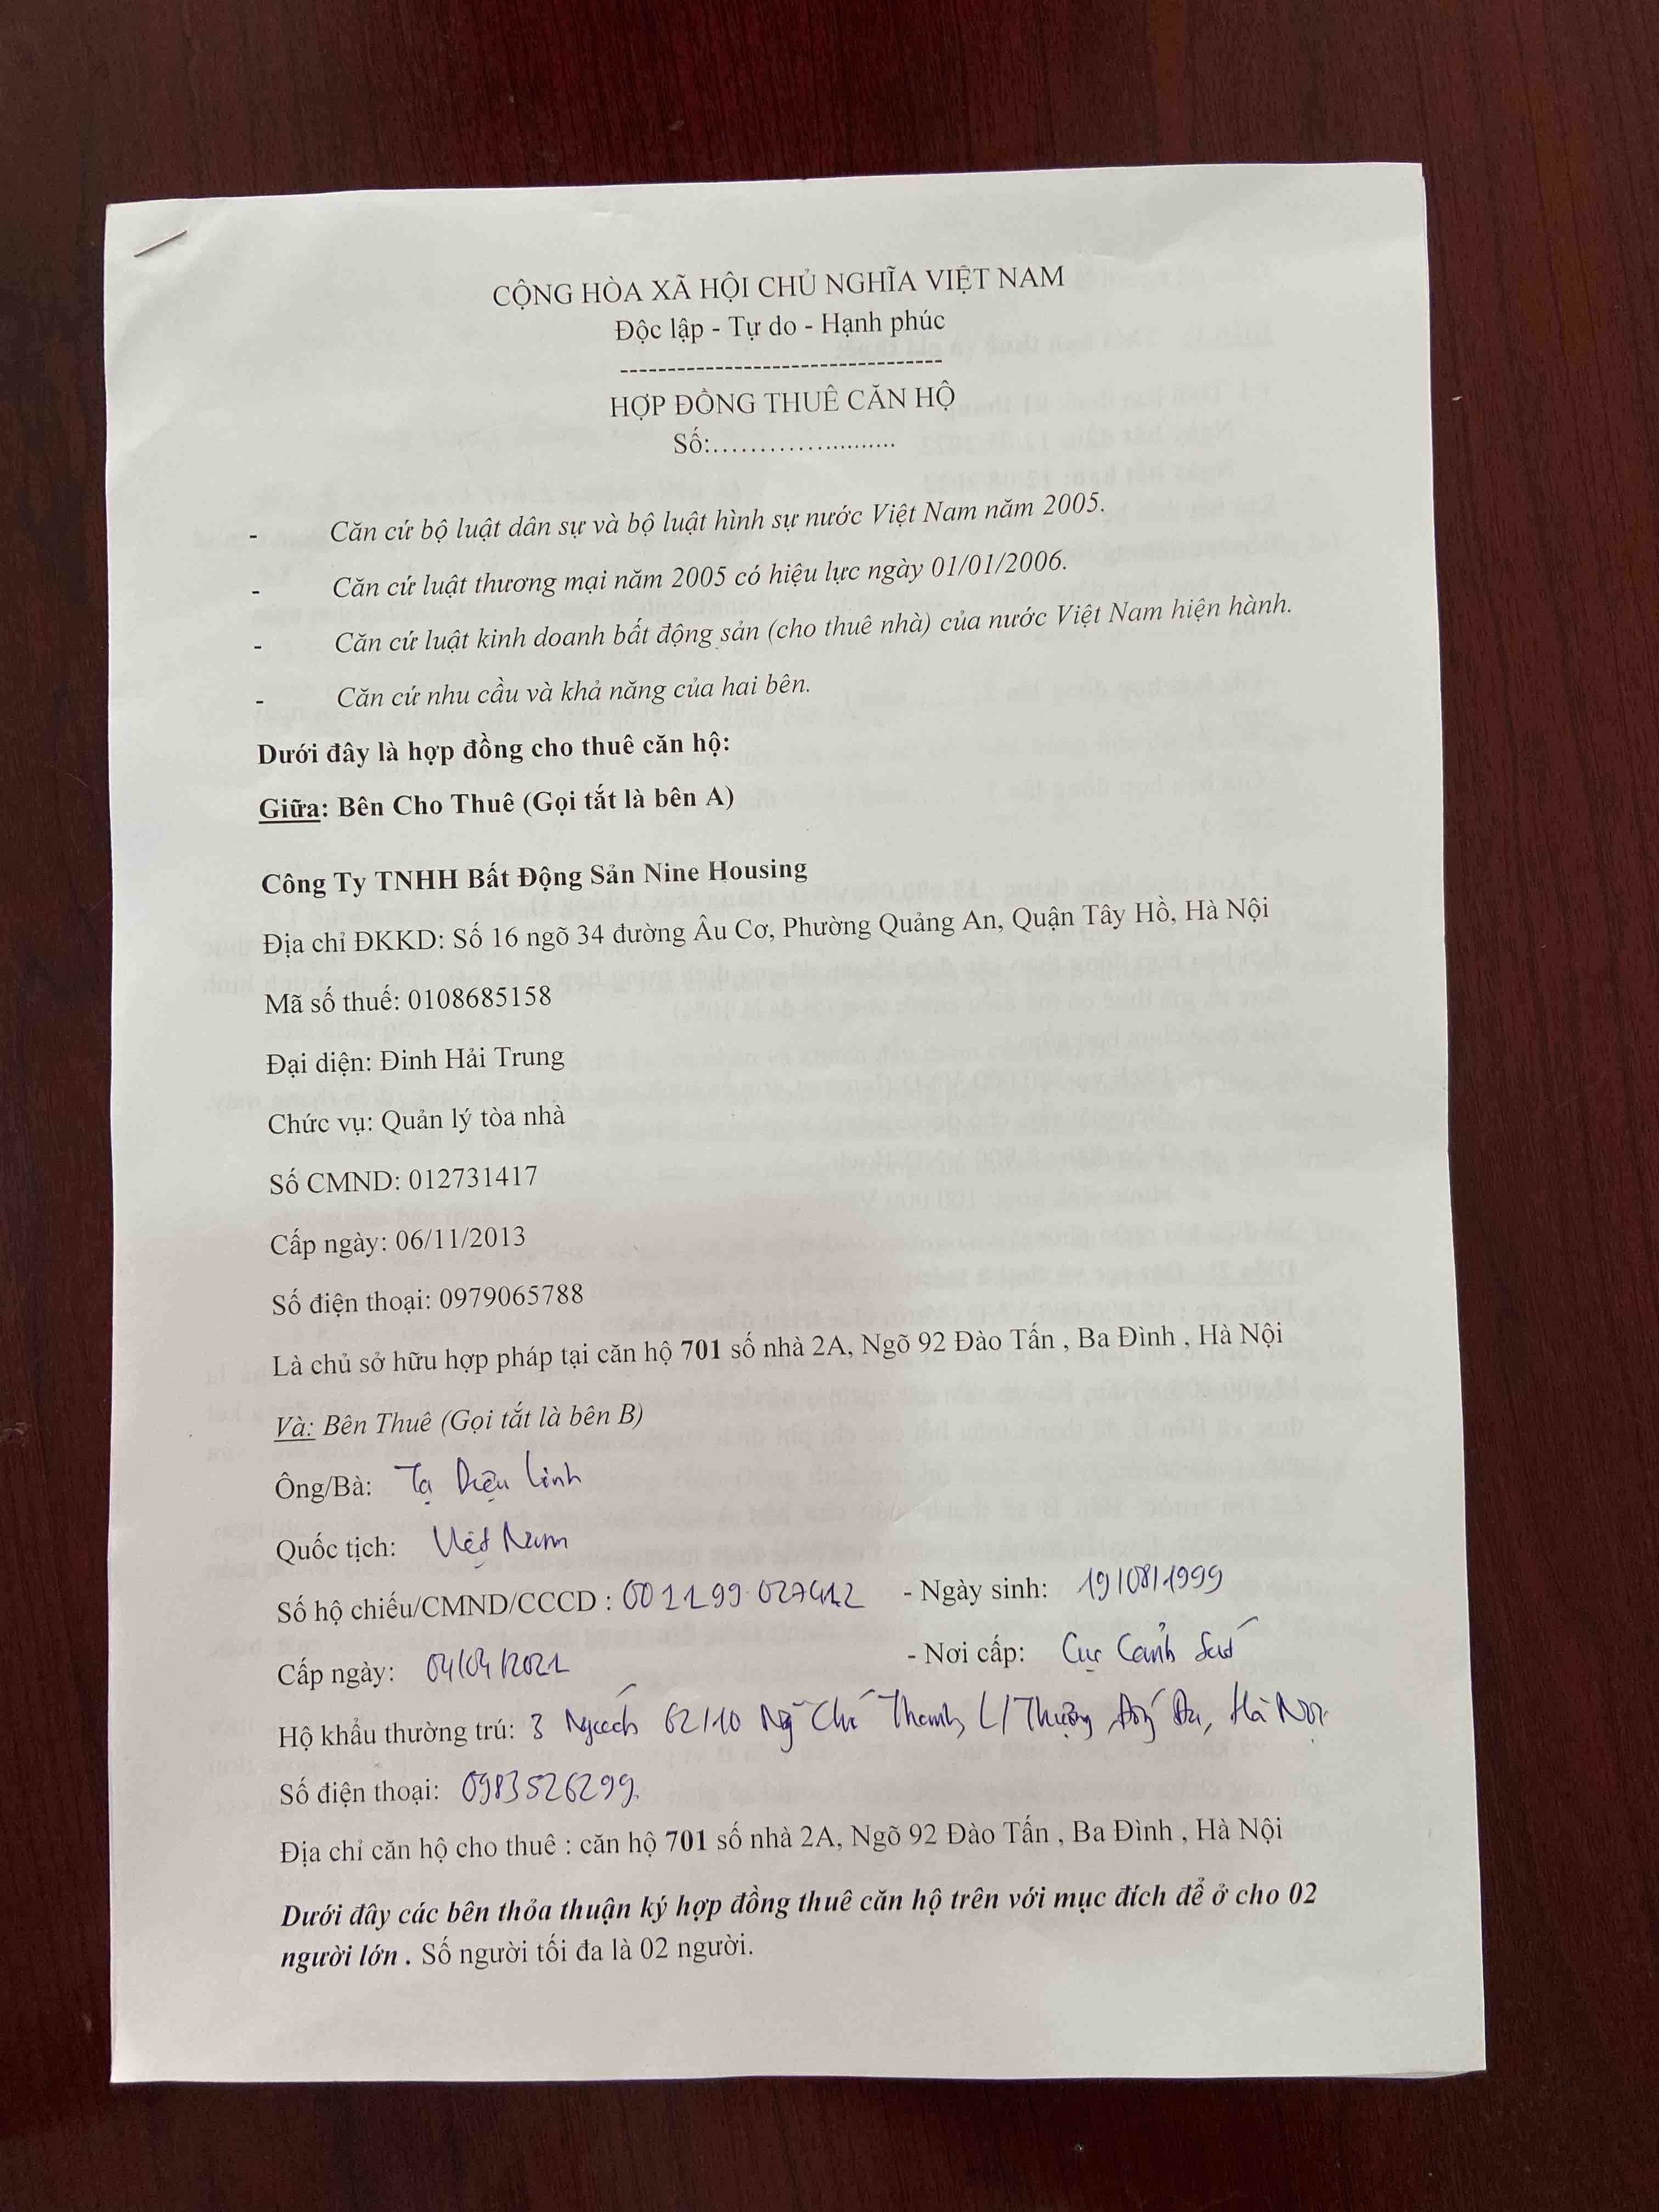 CỘNG HÒA XÃ HỘI CHỦ NGHĨA VIỆT NAM
Độc lập - Tự do - Hạnh phúc
----------------------------------
HỢP ĐỒNG THUÊ CĂN HỘ
Số:.......................
- Căn cứ bộ luật dân sự và bộ luật hình sự nước Việt Nam năm 2005.
- Căn cứ luật thương mại năm 2005 có hiệu lực ngày 01/01/2006.
- Căn cứ luật kinh doanh bất động sản (cho thuê nhà) của nước Việt Nam hiện hành.
- Căn cứ nhu cầu và khả năng của hai bên.
Dưới đây là hợp đồng cho thuê căn hộ:
Giữa: Bên Cho Thuê (Gọi tắt là bên A)
Công Ty TNHH Bất Động Sản Nine Housing
Địa chỉ ĐKKD: Số 16 ngõ 34 đường Âu Cơ, Phường Quảng An, Quận Tây Hồ, Hà Nội
Mã số thuế: 0108685158
Đại diện: Đinh Hải Trung
Chức vụ: Quản lý tòa nhà
Số CMND: 012731417
Cấp ngày: 06/11/2013
Số điện thoại: 0979065788
Là chủ sở hữu hợp pháp tại căn hộ 701 số nhà 2A, Ngõ 92 Đào Tấn , Ba Đình , Hà Nội
Và: Bên Thuê (Gọi tắt là bên B)
Ông/Bà: Tạ Diệu Linh
Quốc tịch: Việt Nam
Số hộ chiếu/CMND/CCCD : 001199027412 - Ngày sinh: 19/08/1999
Cấp ngày: 04/04/2021 - Nơi cấp: Cục Cảnh Sát
Hộ khẩu thường trú: 3 Ngách 62/10 Ng Chí Thanh, L/Thượng, Đống Đa, Hà Nội
Số điện thoại: 0983526299
Địa chỉ căn hộ cho thuê : căn hộ 701 số nhà 2A, Ngõ 92 Đào Tấn , Ba Đình , Hà Nội
Dưới đây các bên thỏa thuận ký hợp đồng thuê căn hộ trên với mục đích để ở cho 02
người lớn . Số người tối đa là 02 người.